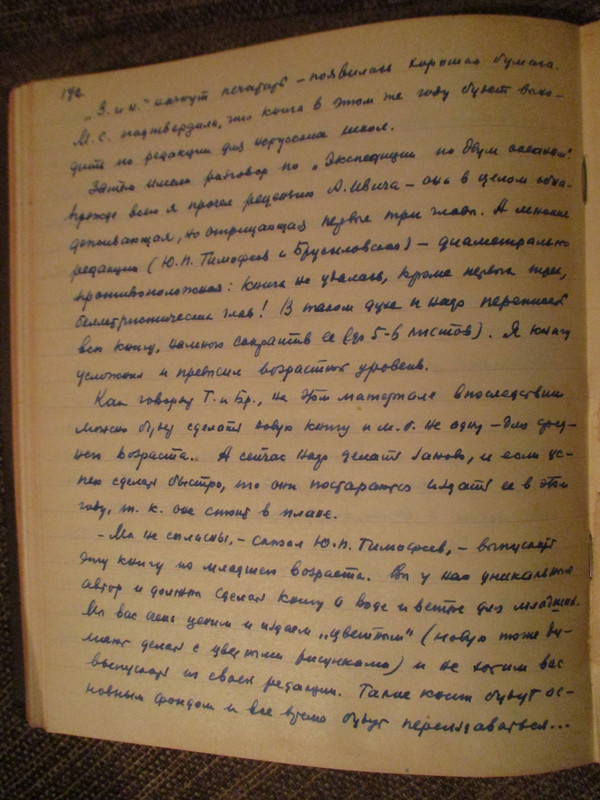 172
„З. и н." начнут печатать – появилась хорошая бумага.
М. С. подтвердила, что книга в этом же году будет выхо-
дить по редакции для нерусских школ.
Затем имели разговор по „Экспедиции по двум океанам".
Прежде всего я прочел рецензию А. Ивича – она в целом одоб-
, но отрицающая первые три главы. А мнение
редакции (Ю. П. Тимофеев и Брусиловская) – диаметрально
противоположная: книга не удалась, кроме первых трех,
беллетристических глав! В таком духе и надо переписать
всю книгу, намного сократив ее (до 5-6 листов). Я книгу
усложнил и превысил возрастной уровень.
Как говорят Т. и Бр., на этом материале впоследствии
можно будет сделать новую книгу и м. б. не одну – для сред-
него возраста. А сейчас надо делать заново, и если ус-
пею сделать быстро, то они постараются издать ее в этом
году, т. к. она стоит в плане.
– Мы не согласны, – сказал Ю. П. Тимофеев, – выпускать
эту книгу из младшего возраста. Вы у нас уникальный
автор и должны сделать книгу о воде и ветре для младших.
Мы вас очень ценим и издаем „цветным" (новую тоже ду-
мают делать с цветными рисунками) и не хотим вас
выпускать из своей редакции. Такие книги будут ос-
новным фондом и все время будут переиздаваться...